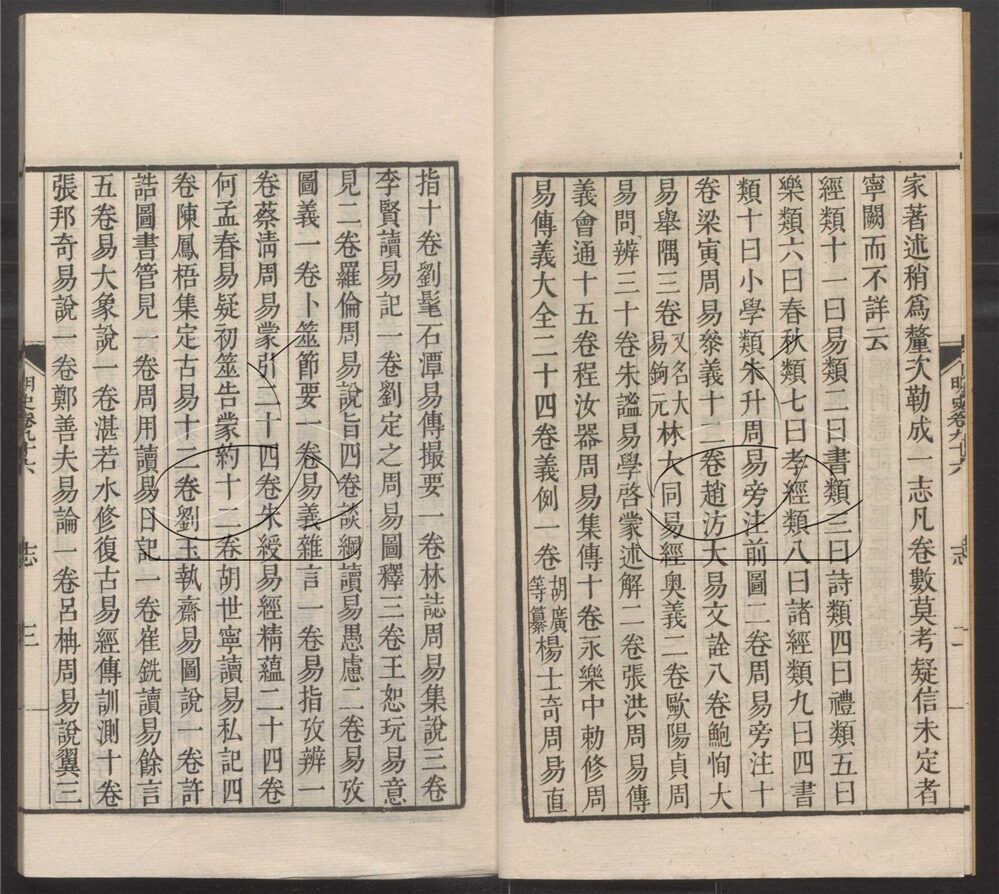 家著述稍爲釐次勒成一志凡卷數莫考疑信未定者
寧闕而不詳云
經類十一曰易類二曰書類三曰詩類四曰禮類五曰
樂類六曰春秋類七曰孝經類八曰諸經類九曰四書
類十曰小學類朱升周易旁注前圖二卷周易旁注十
卷梁寅周易參義十二卷趙汸大易文詮八卷鮑恂大
易舉隅三卷又名大易鉤元林大同易經奧義二卷歐陽貞周
易問辨三十卷朱謐易學啓蒙述解二卷張洪周易傳
義會通十五卷程汝器周易集傳十卷永樂中勅修周
易傳義大全二十四卷義例一卷胡廣等纂楊士奇周易直
明史卷九十六
志
二
指十卷劉髦石潭易傳撮要一卷林誌周易集說三卷
李賢讀易記一卷劉定之周易圖釋三卷王恕玩易意
見二卷羅倫周易說旨四卷談綱讀易愚慮二卷易攷
圖義一卷卜筮節要一卷易義雜言一卷易指攷辨一
卷蔡淸周易蒙引二十四卷朱綬易經精蘊二十四卷
何孟春易疑初筮告蒙約十二卷胡世寧讀易私記四
卷陳鳳梧集定古易十二卷劉玉執齋易圖說一卷許
誥圖書管見一卷周用讀易日記一卷崔銑讀易餘言
五卷易大象說一卷湛若水修復古易經傳訓測十卷
張邦奇易說一卷鄭善夫易論一卷呂柟周易說翼三
明史卷九十六
志
三